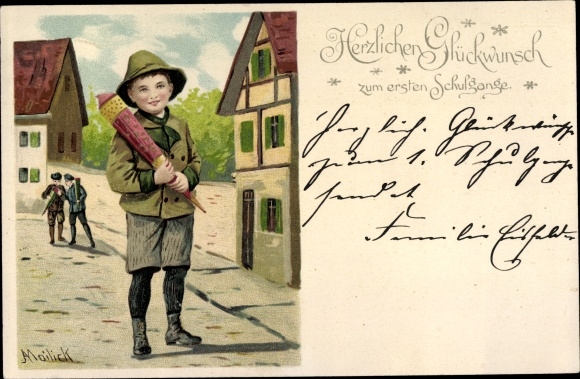 Herzlichen Glückwunsch
zum ersten Schulgange.
Herzlich. Glückwünsche
zum 1. Schulgang
sendet
Familie Eisfelder
AMailick